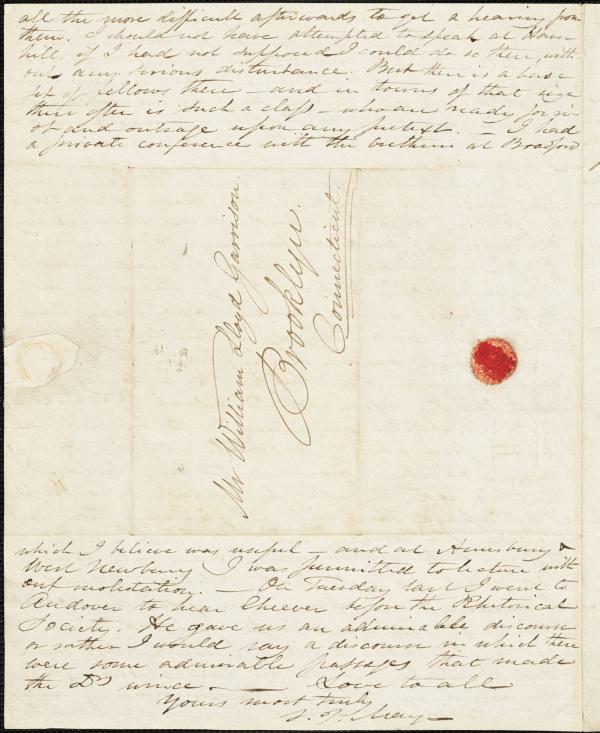 all the more difficult afterwards to get a hearing from
them. I should not have attempted to speak at Haver
hill, if I had not supposed I could do so there, with
out any serious disturbance. But there is a base
set of fellows there – and in towns of that size
there often is such a class – who are ready for ri-
ot and outrage upon any pretext. – I had
a private conference with the brethren at Bradford
Mr William Lloyd Garrison.
Brooklyn.
Connecticut.
which I believe was useful – and at Amesbury &
West Newbury I was permitted to lecture with
out molestation. – On Tuesday last I went to
Andover to hear Cheever before the Rhetorical
Society. He gave us an admirable discourse
or rather I would say a discourse in which there
were some admirable passages that made
the Ds wince. – Love to all
Yours most truly
S. J. May –